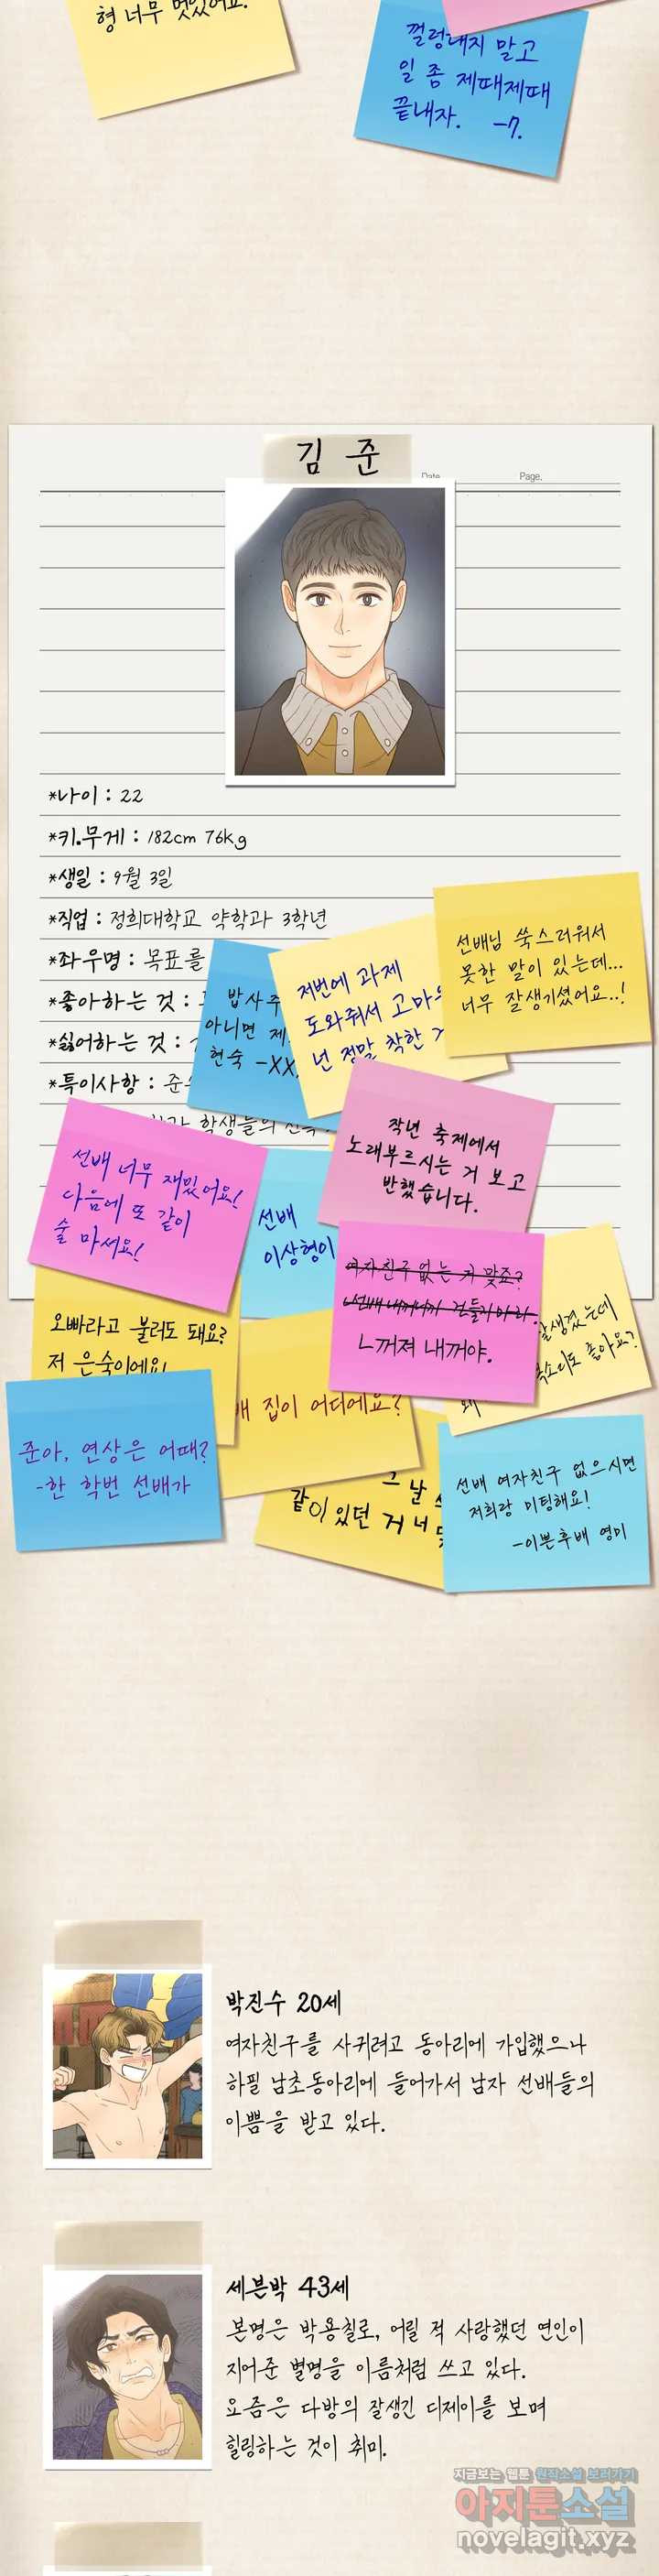 형 너무 멋있어요.
껄렁대지 말고
일 좀 제때제때
끝내자. -7.
김 준
Date.
Page.
*나이 : 22
*키.무게 : 182cm 76kg
*생일 : 9월 3일
*직업 : 정희대학교 약학과 3학년
*좌우명 : 목표를
*좋아하는 것 :
*싫어하는 것 :
*특이사항 : 준
학생들의
밥 사주
아니면 제
현숙 -XX
저번에 과제
도와줘서 고마
넌 정말 착한
선배님 쑥스러워서
못한 말이 있는데...
너무 잘생기셨어요..!
작년 축제에서
노래부르시는 거 보고
반했습니다.
선배 너무 재밌어요!
다음에 또 같이
술 마셔요!
선배
이상형이
여자친구 없는 거 맞죠?
ㄴ꺼져 내꺼야.
오빠라고 불러도 돼요?
저 은숙이에요!
잘생겼는데
목소리도 좋아요?
왜
배 집이 어디에요?
준아, 연상은 어때?
-한 학번 선배가
그날
같이 있던 거 너
선배 여자친구 없으시면
저희랑 미팅해요!
-이쁜후배 영미
박진수 20세
여자친구를 사귀려고 동아리에 가입했으나
하필 남초동아리에 들어가서 남자 선배들의
이쁨을 받고 있다.
세븐박 43세
본명은 박용칠로, 어릴 적 사랑했던 연인이
지어준 별명을 이름처럼 쓰고 있다.
요즘은 다방의 잘생긴 디제이를 보며
힐링하는 것이 취미.
지금보는 웹툰 원작소설 보러가기
아지툰소설
novelagit.xyz